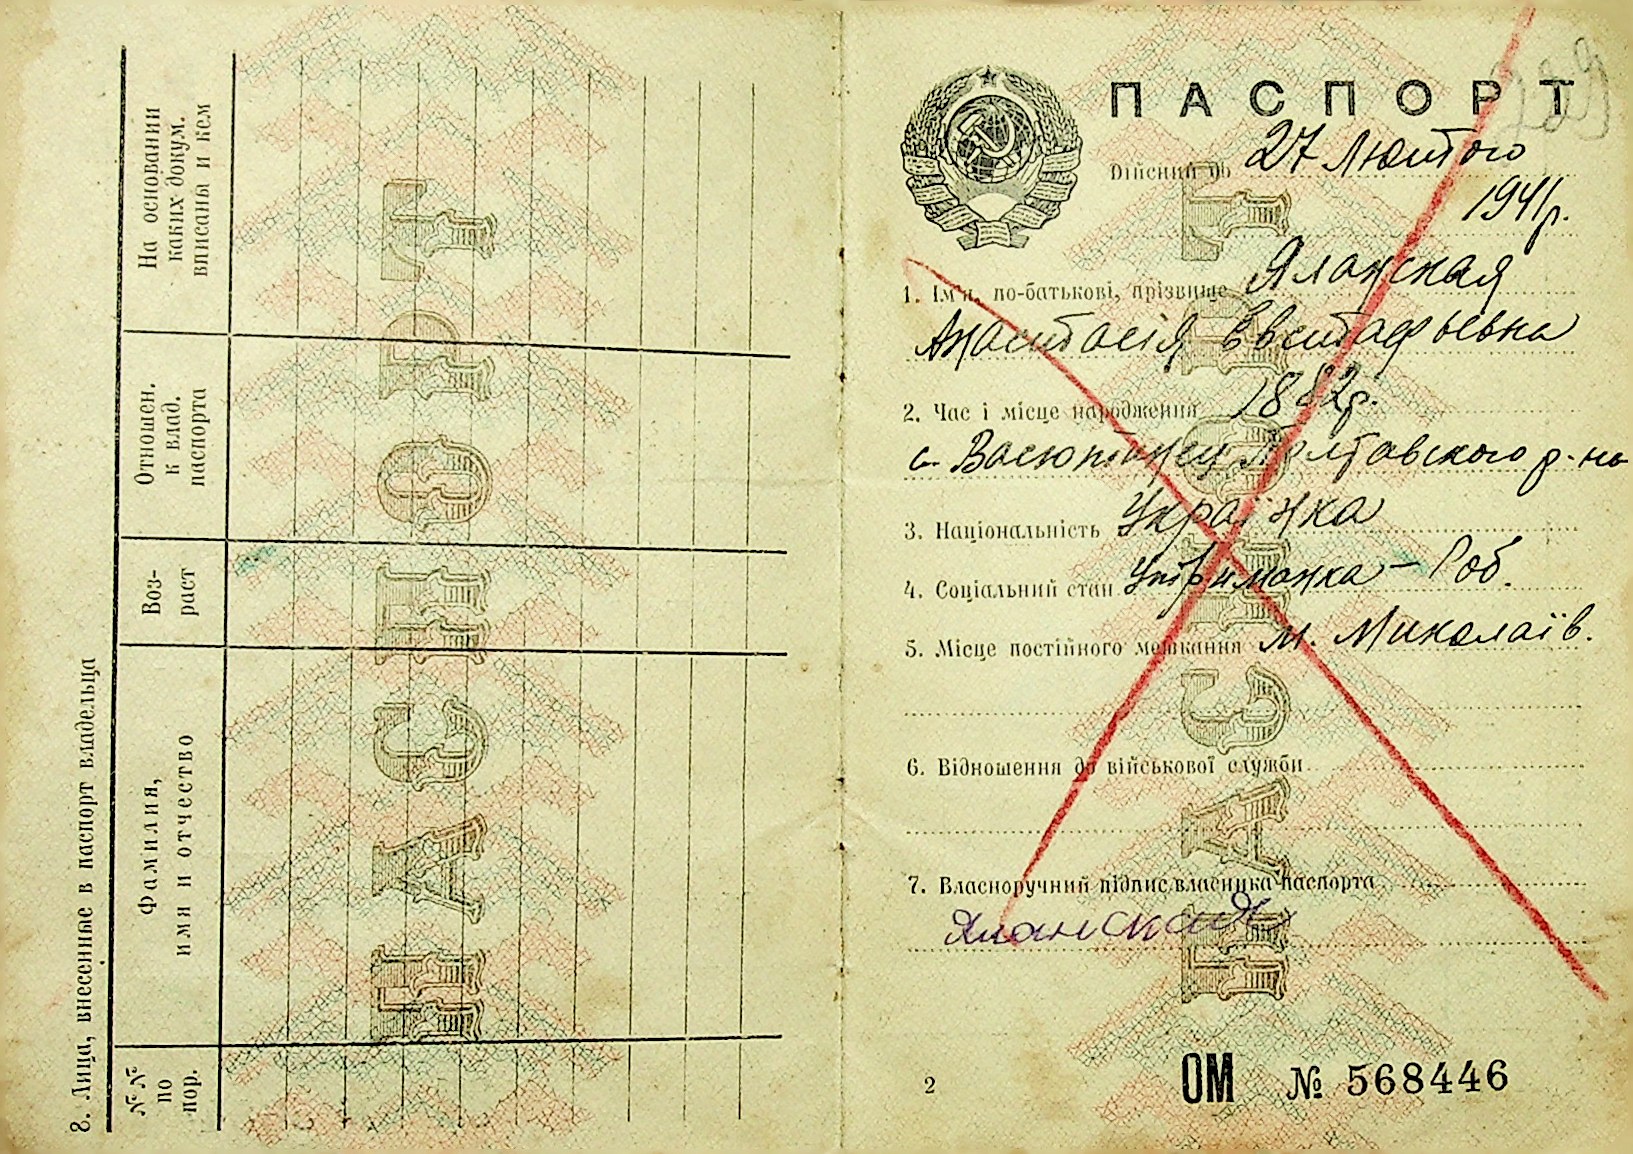 8. Лица, внесенные в паспорт владельца
№№ по пор.
Фамилия, имя и отчество
Воз-раст
Отношен. к влад. паспорта
На основании каких докум. вписаны и кем
ПАСПОРТ
ПАСПОРТ
Дійсний до 27 Лютого
1941р.
1. Ім'я, по-батькові, прізвище Яланская
Анастасія Евстафьевна
2. Час і місце народження 1882р.
с. Полтавского р-на
3. Національність Українка
4. Соціальний стан Утриманка – Роб.
5. Місце постійного мешкання м. Миколаїв.
6. Відношення до військової служби
7. Власноручний підпис власника паспорта
Яланская
ПАСПОРТ
2 ОМ № 568446